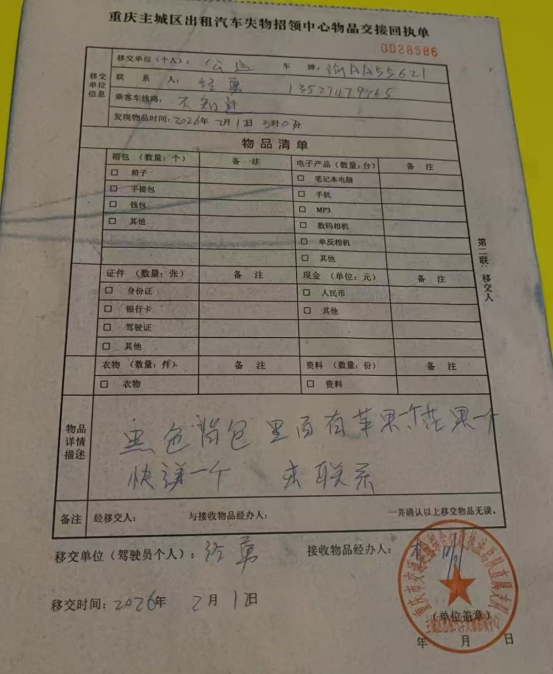 重庆主城区出租汽车失物招领中心物品交接回执单
0028586
移交单位信息
移交单位（个人）： 车 牌：渝AA55621
联 系 人： 勇 13527479965
乘客车线路：不知道
发现物品时间：2026年2月1日
物 品 清 单
箱包（数量：个） 备 注 电子产品（数量：台） 备 注
□ 箱子 □ 笔记本电脑
□ 手提包 □ 手机
□ 钱包 □ MP3
□ 其他 □ 数码相机
□ 单反相机
□ 其他
证件（数量：张） 备 注 现金（单位：元） 备 注
□ 身份证 □ 人民币
□ 银行卡 □ 其他
□ 驾驶证
□ 其他
衣物（数量：件） 备 注 资料（数量：份） 备 注
□ 衣物 □ 资料
第二联：移交人
物品详情描述
黑色背包里面有苹果个芒果一个
快递一个 未联系
备注 经移交人： 与接收物品经办人： 一并确认以上移交物品无误。
移交单位（驾驶员个人）： 勇 接收物品经办人：
移交时间：2026年2月1日
（单位盖章）
年 月 日